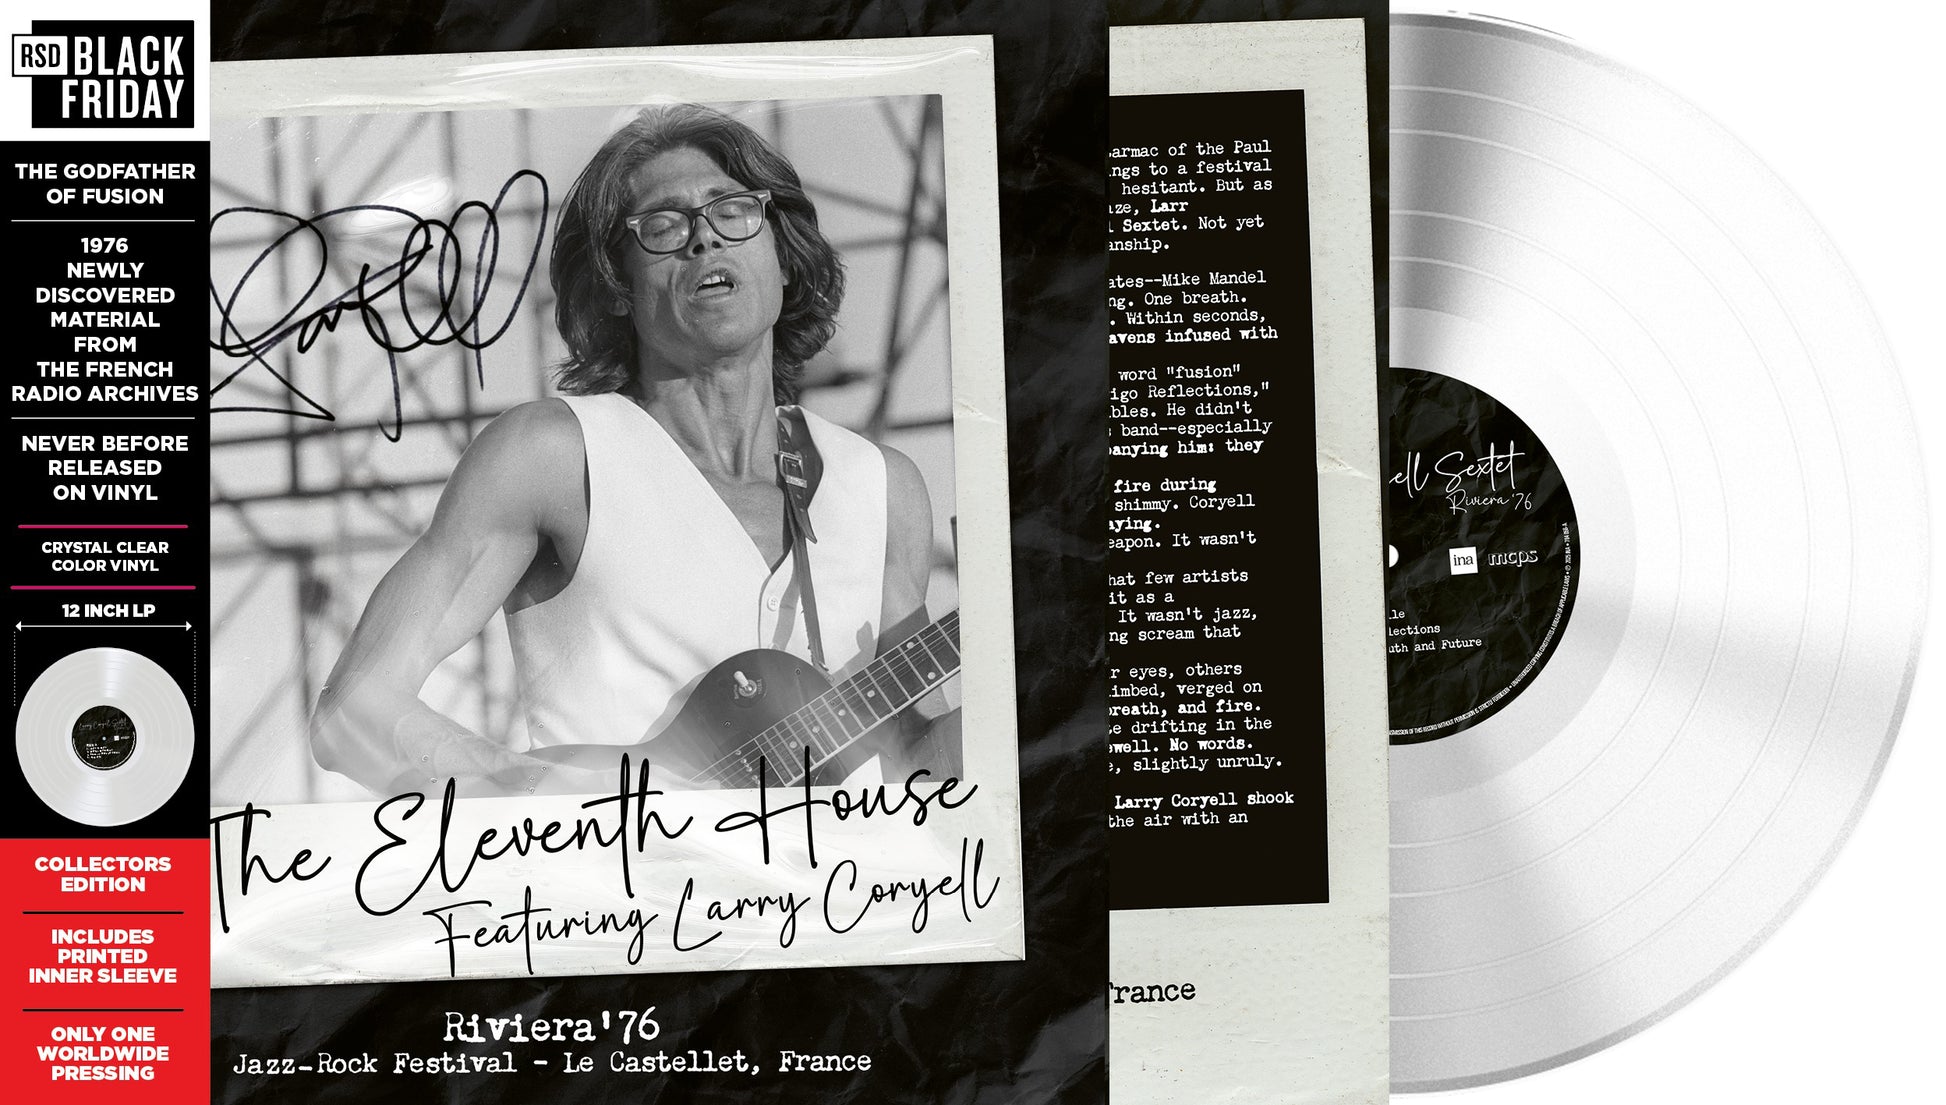 RSD BLACK
FRIDAY
THE GODFATHER
OF FUSION
1976
NEWLY
DISCOVERED
MATERIAL
FROM
THE FRENCH
RADIO ARCHIVES
NEVER BEFORE
RELEASED
ON VINYL
CRYSTAL CLEAR
COLOR VINYL
12 INCH LP
COLLECTORS
EDITION
INCLUDES
PRINTED
INNER SLEEVE
ONLY ONE
WORLDWIDE
PRESSING
Coryell
The Eleventh House
Featuring Larry Coryell
Riviera'76
Jazz-Rock Festival - Le Castellet, France
armac of the Paul
ngs to a festival
hesitant. But as
ze, Larr
l Sextet. Not yet
anship.
ates--Mike Mandel
ng. One breath.
. Within seconds,
avens infused with
word "fusion"
igo Reflections,"
bles. He didn't
s band--especially
panying him: they
fire during
shimmy. Coryell
aying.
eapon. It wasn't
hat few artists
it as a
It wasn't jazz,
ng scream that
r eyes, others
imbed, verged on
breath, and fire.
te drifting in the
ewell. No words.
e, slightly unruly.
Larry Coryell shook
the air with an
France
ell Sextet
Riviera '76
ina mcps
le
lections
uth and Future